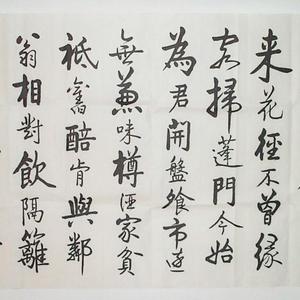 来花徑不曾緣
客掃蓬門今始
為君開盤飧市遠
無兼味樽酒家貧
祇舊醅肯與鄰
翁相對飲隔籬